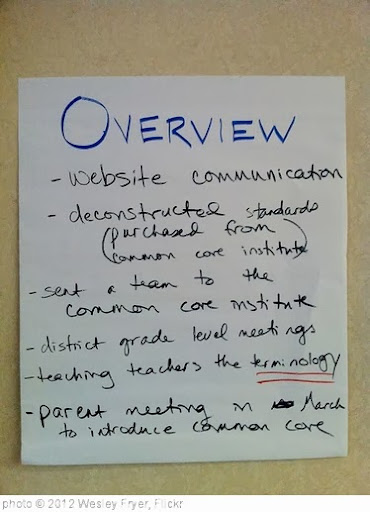 OVERVIEW
- website communication
- deconstructed standards
(purchased from
common core institute)
- sent a team to the
common core institute
- district grade level meetings
- teaching teachers the terminology
- parent meeting in March
to introduce common core
photo © 2012 Wesley Fryer, Flickr